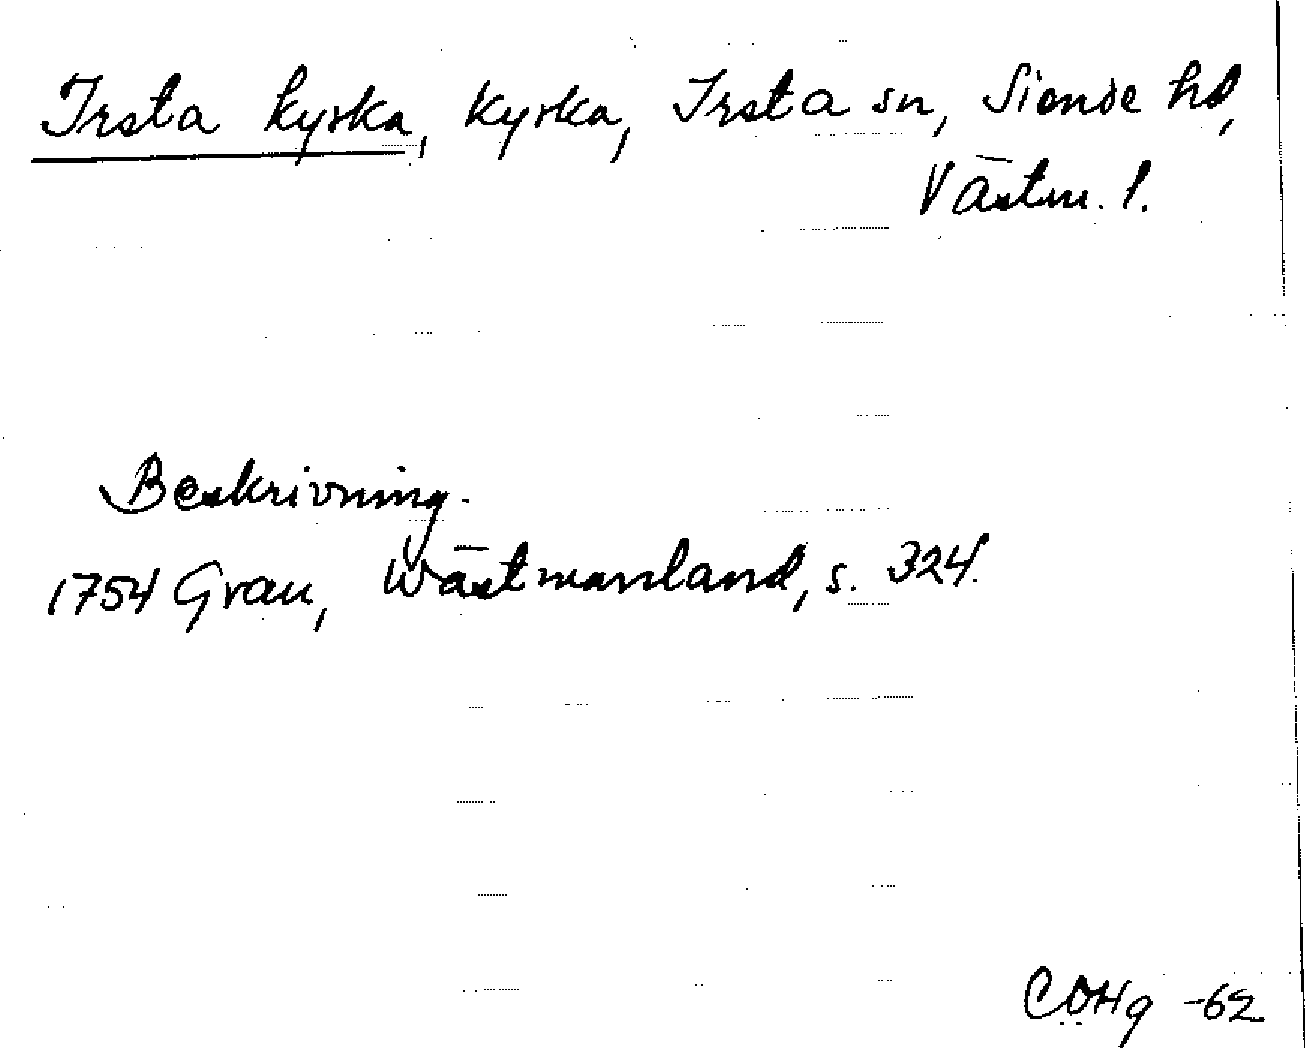 Irsta kyrka, kyrka, Irsta sn, Siende hd,
Västm. l.
Beskrivning.
1754 Grau, Wästmanland, s. 324.
COHg -62